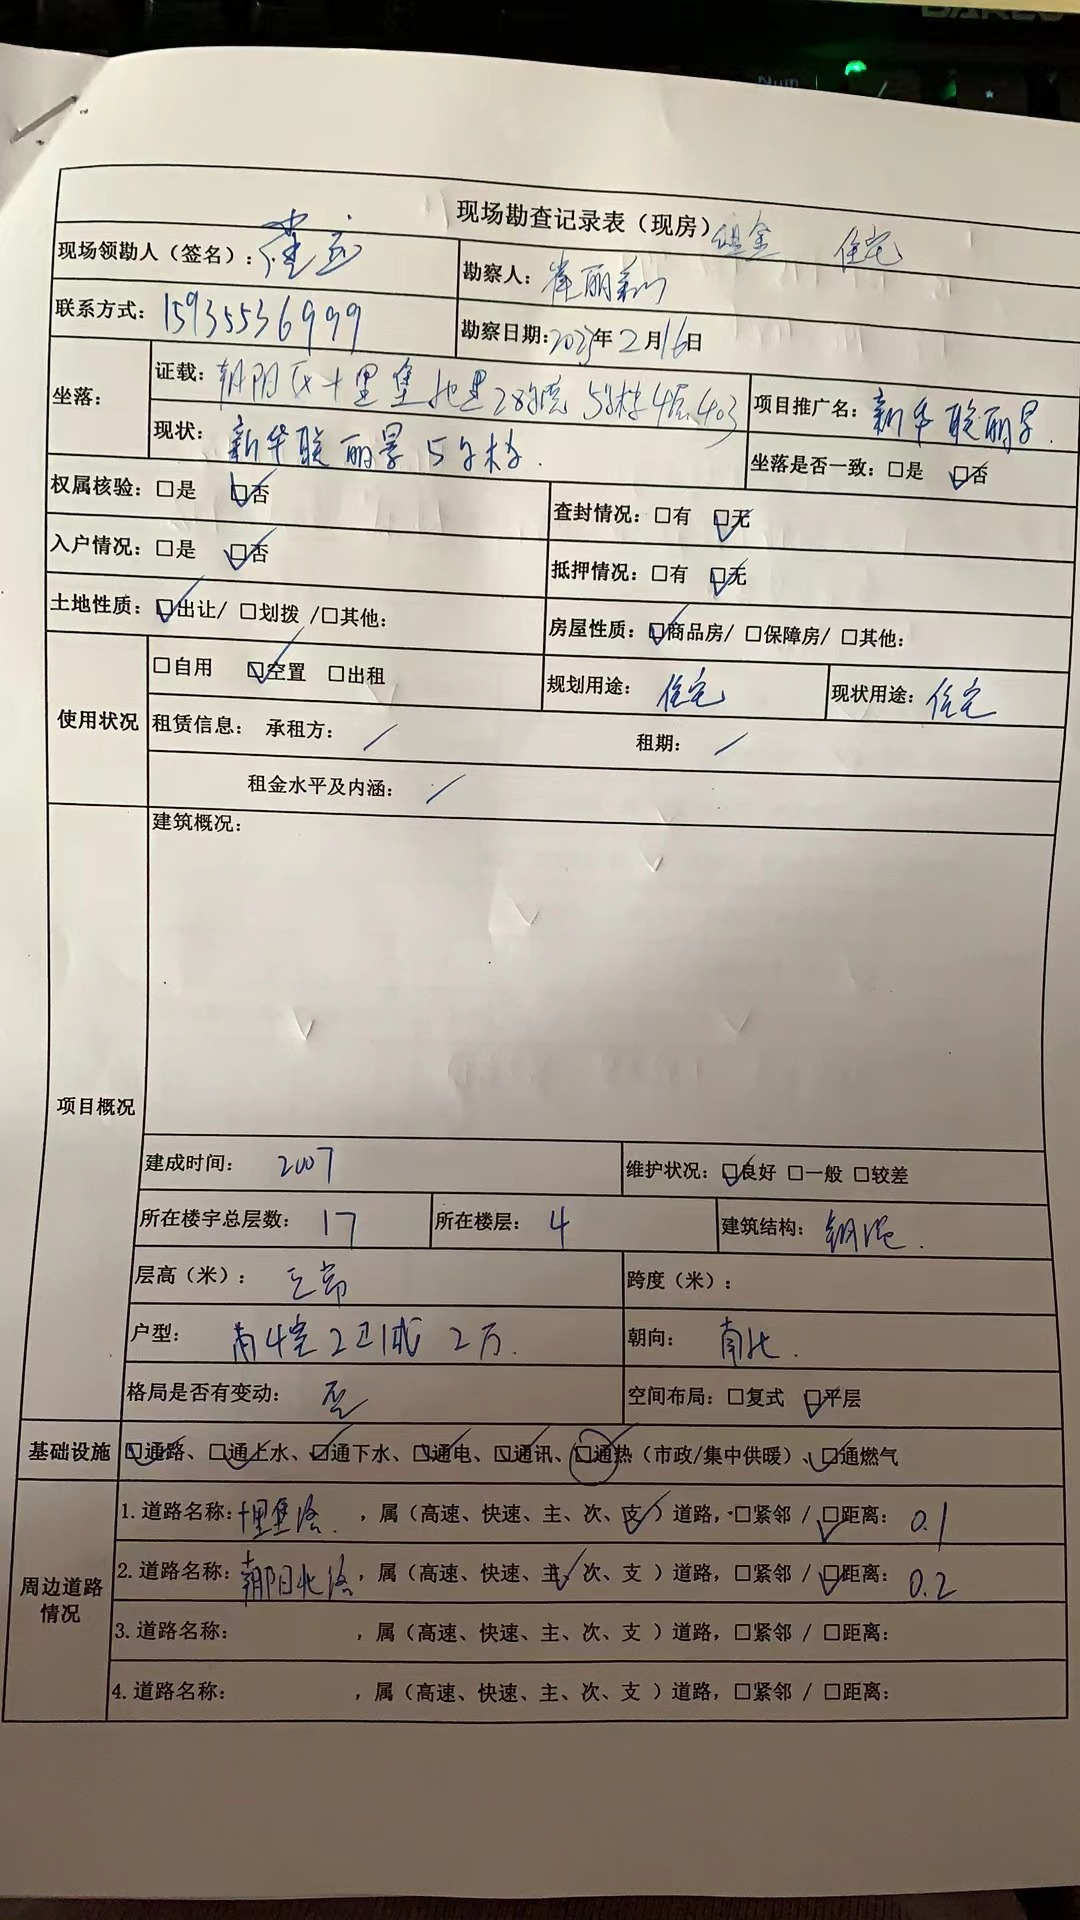 Num
现场勘查记录表（现房）租金 住宅
现场领勘人（签名）：
勘察人：崔丽
联系方式：15935536999
勘察日期：2023年2月16日
坐落：
证载：朝阳区十里堡 28号院 5号楼4层403
项目推广名：新华联丽景
现状：新华联丽景5号楼
坐落是否一致：□是 ☑否
权属核验：□是 ☑否
查封情况：□有 ☑无
入户情况：□是 ☑否
抵押情况：□有 ☑无
土地性质：☑出让/ □划拨 /□其他：
房屋性质：☑商品房/ □保障房/ □其他：
使用状况
□自用 ☑空置 □出租
规划用途：住宅
现状用途：住宅
租赁信息：承租方：/ 租期：/
租金水平及内涵：/
项目概况
建筑概况：
建成时间：2007
维护状况：☑良好 □一般 □较差
所在楼宇总层数：17
所在楼层：4
建筑结构：钢混.
层高（米）：正常
跨度（米）：
户型：4室2卫 2
朝向：南北.
格局是否有变动：否
空间布局：□复式 ☑平层
基础设施
☑通路、☑通上水、☑通下水、☑通电、☑通讯、☑通热（市政/集中供暖）、☑通燃气
周边道路情况
1.道路名称：十里堡路，属（高速、快速、主、次、支✓）道路，□紧邻 / ☑距离：0.1
2.道路名称：朝阳北路，属（高速、快速、主✓、次、支 ）道路，□紧邻 / ☑距离：0.2
3.道路名称： ，属（高速、快速、主、次、支 ）道路，□紧邻 / □距离：
4.道路名称： ，属（高速、快速、主、次、支 ）道路，□紧邻 / □距离：